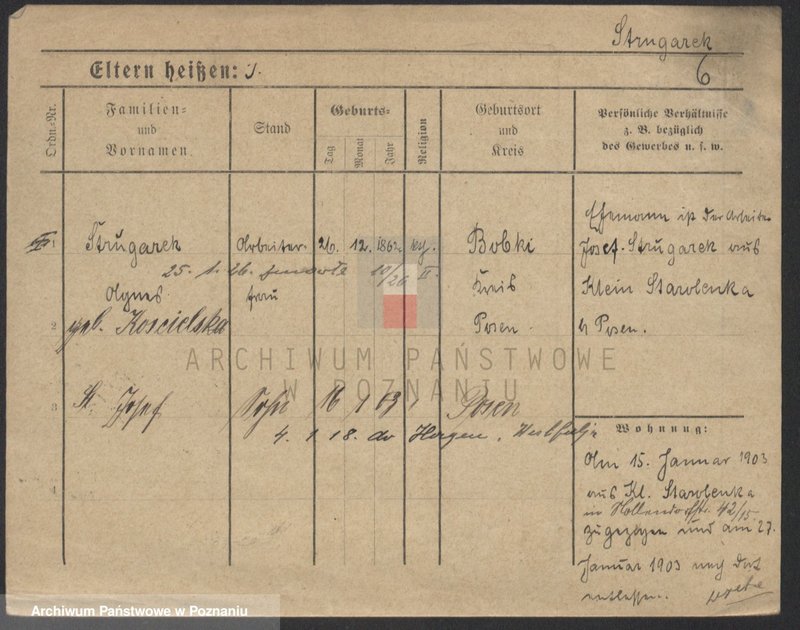 Strugarek
6
Eltern heißen:
Ordn.-Nr.
Familien-
und
Vornamen
Stand
Geburts-
Tag
Monat
Jahr
Religion
Geburtsort
und
Kreis
Persönliche Verhältnisse
z. B. bezüglich
des Gewerbes u. s. w.
1
Strugarek
Arbeiter-
26. 12. 1862
Bobki
25. 1. 26.
10/26 II.
Agnes
frau
Kreis
2
geb. Koscielska
Posen.
Ehemann ist der Arbeiter
Josef Strugarek aus
Klein Starolenka
b Posen.
3
St. Josef
Sohn
16 1 03
Posen
4. 1. 18. do Hagen, Westfalja
4
Wohnung:
Am 15. Januar 1903
aus Kl. Starolenka
42/15.
zugezogen und am 27.
Januar 1903 nach dort
entlassen.
ARCHIWUM PAŃSTWOWE
W POZNANIU
Archiwum Państwowe w Poznaniu